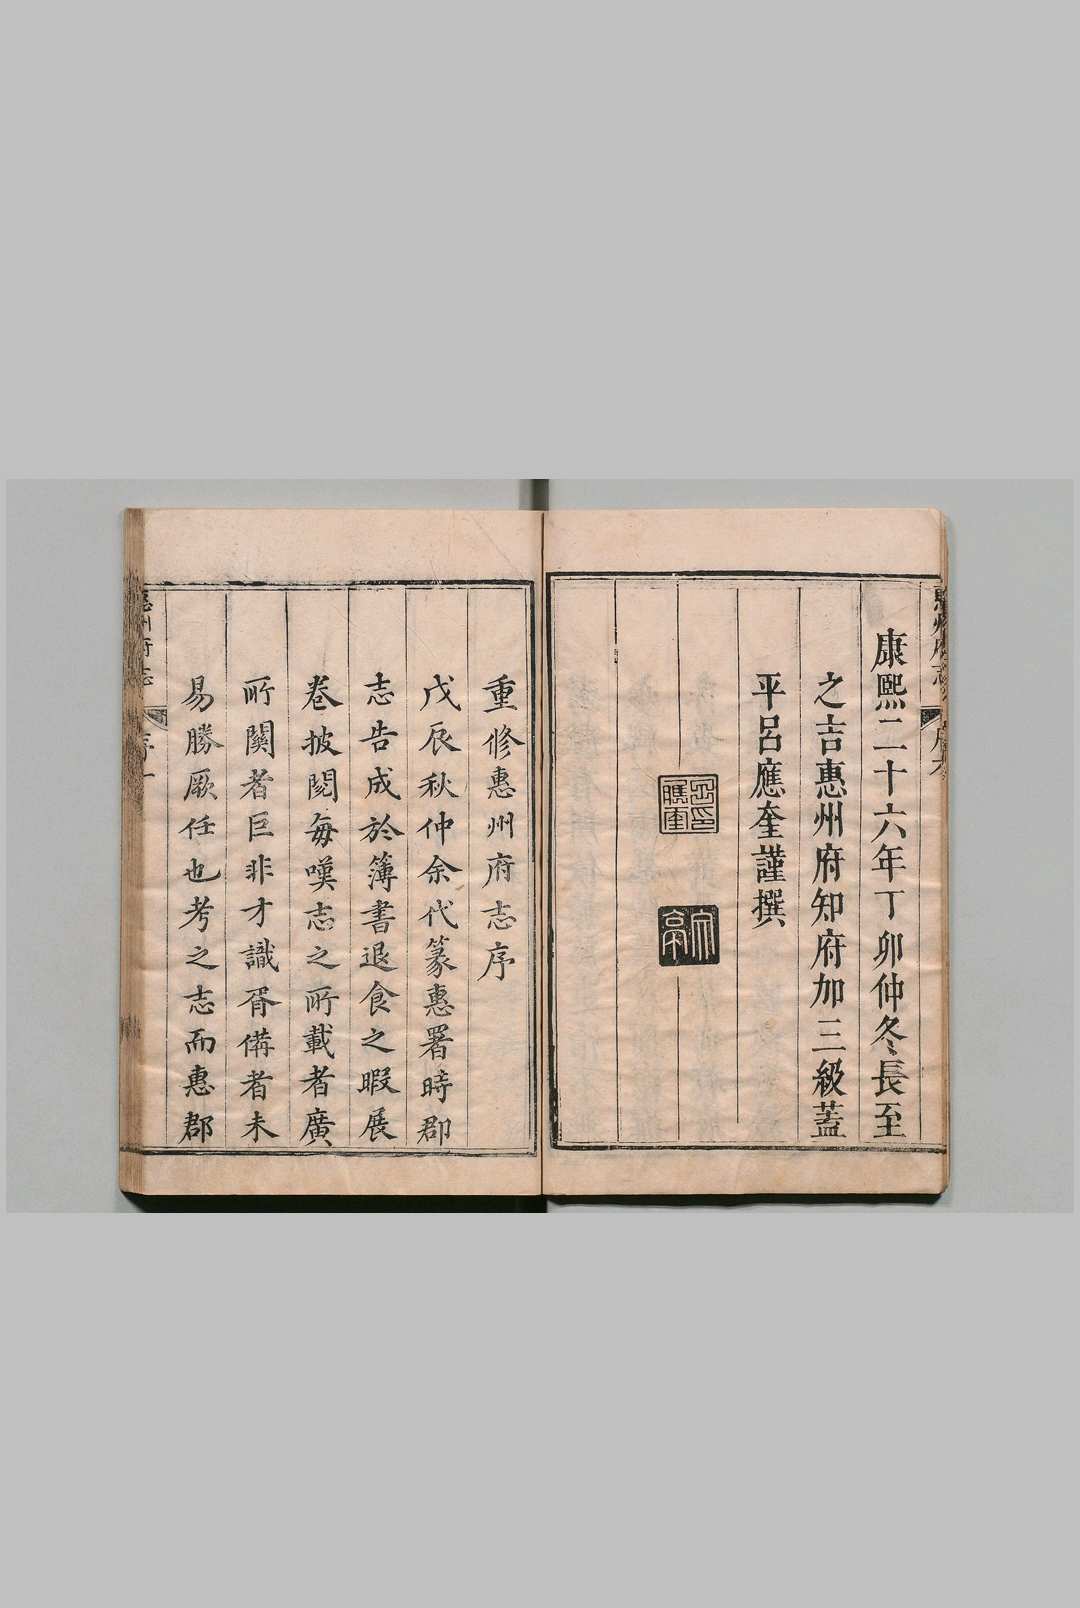 康熙二十六年丁卯仲冬長至
之吉惠州府知府加三級蓋
平呂應奎謹撰
重修惠州府志序
戊辰秋仲余代篆惠署時郡
志告成於簿書退食之暇展
卷披閱每嘆志之所載者廣
所關者巨非才識胥備者未
易勝厥任也考之志而惠郡
惠州府志
序一